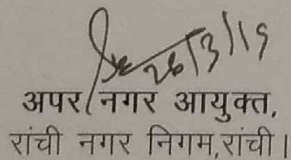 26/3/19
अपर नगर आयुक्त,
रांची नगर निगम,रांची।